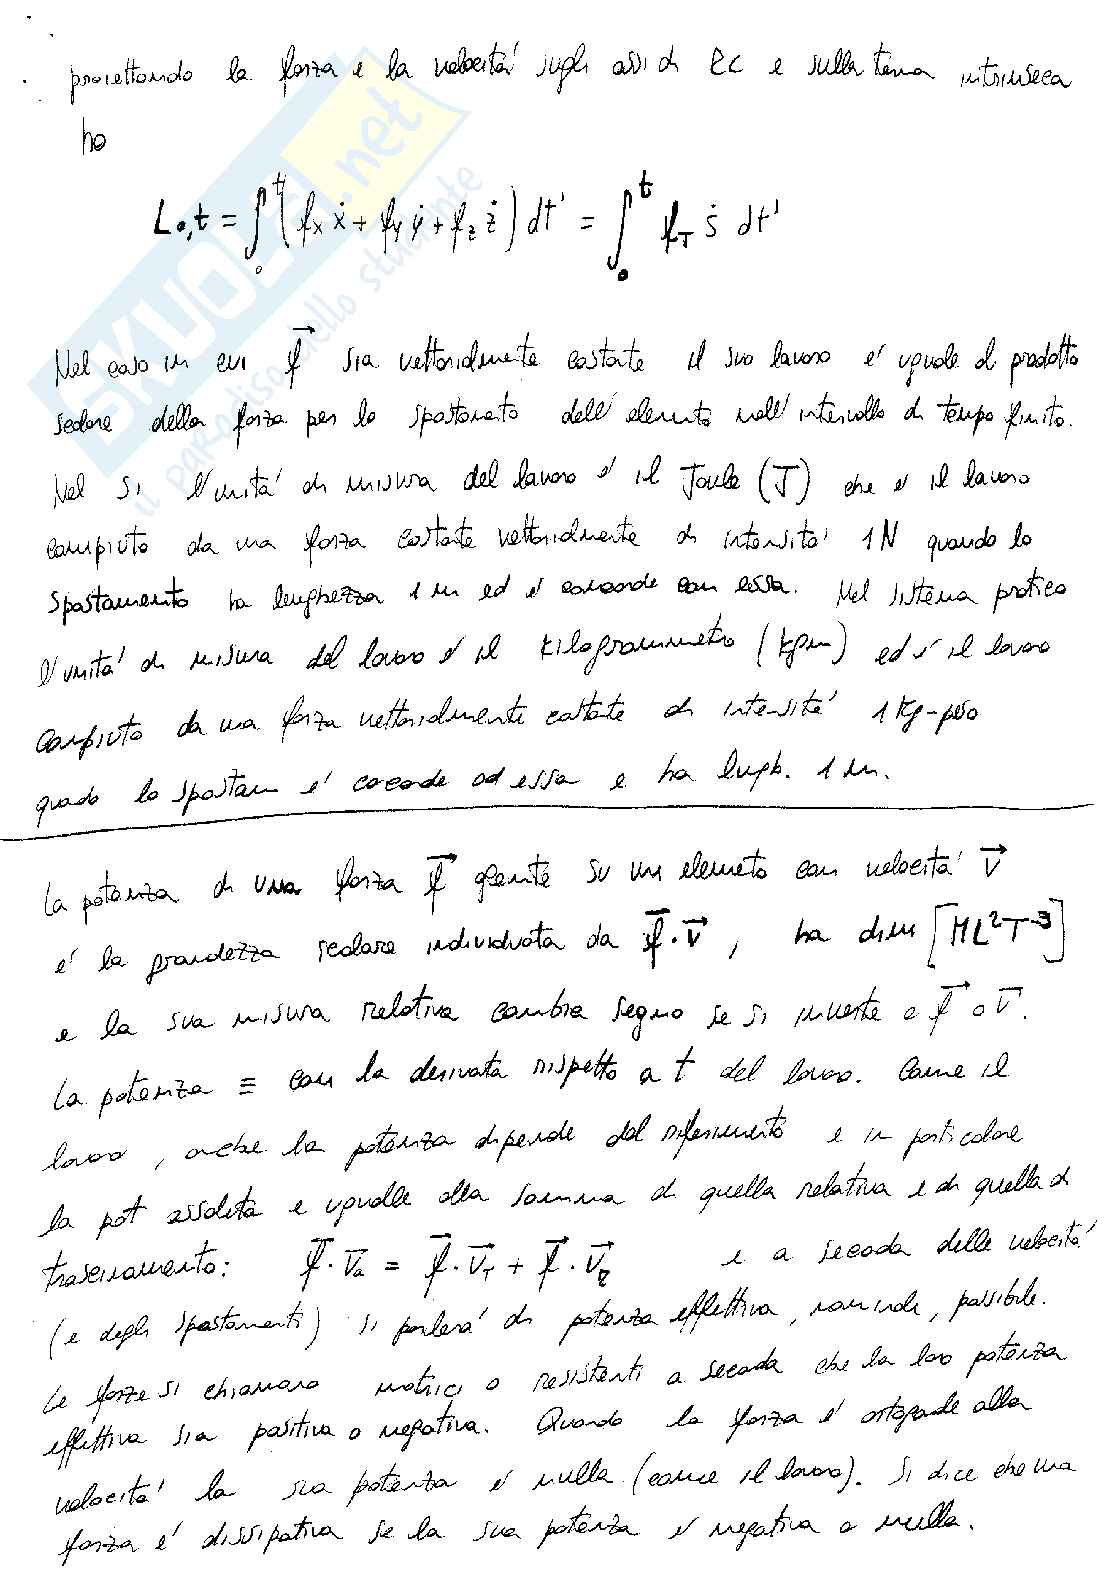 proiettando la forza e la velocità sugli assi di RC e sulla terna intrinseca
ho
L₀,t = ∫₀ᵗ (fx ẋ + fy ẏ + fz ż) dt' = ∫₀ᵗ f_T ṡ dt'
Nel caso in cui f⃗ sia vettorialmente costante il suo lavoro è uguale al prodotto
scalare della forza per lo spostamento dell'elemento nell'intervallo di tempo finito.
Nel SI l'unità di misura del lavoro è il Joule (J) che è il lavoro
compiuto da una forza costante vettorialmente di intensità 1N quando lo
spostamento ha lunghezza 1 m ed è concorde con essa. Nel sistema pratico
l'unità di misura del lavoro è il kilogrammetro (kgm) ed è il lavoro
compiuto da una forza vettorialmente costante di intensità 1 Kg-peso
quando lo spostam è concorde ad essa e ha lungh. 1 m.
La potenza di una forza f⃗ agente su un elemento con velocità v⃗
è la grandezza scalare individuata da f⃗ · v⃗, ha dim [ML²T⁻³]
e la sua misura relativa cambia segno se si inverte o f⃗ o v⃗.
La potenza ≡ con la derivata rispetto a t del lavoro. Come il
lavoro, anche la potenza dipende dal riferimento e in particolare
la pot assoluta è uguale alla somma di quella relativa e di quella di
trascinamento: f⃗ · v⃗a = f⃗ · v⃗τ + f⃗ · v⃗r e a seconda delle velocità
(e degli spostamenti) si parlerà di potenza effettiva, possibile.
Le forze si chiamano motrici o resistenti a seconda che la loro potenza
effettiva sia positiva o negativa. Quando la forza è ortogonale alla
velocità la sua potenza è nulla (come il lavoro). Si dice che una
forza è dissipativa se la sua potenza è negativa o nulla.
SKUOLA.net
il paradiso dello studente